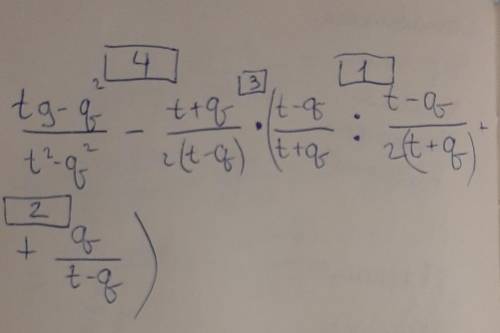 4 3 1
(tg - q²)/(t² - q²) - (t+q)/(2(t-q)) · ((t-q)/(t+q) : (t-q)/(2(t+q)²)
2
+ q/(t-q))